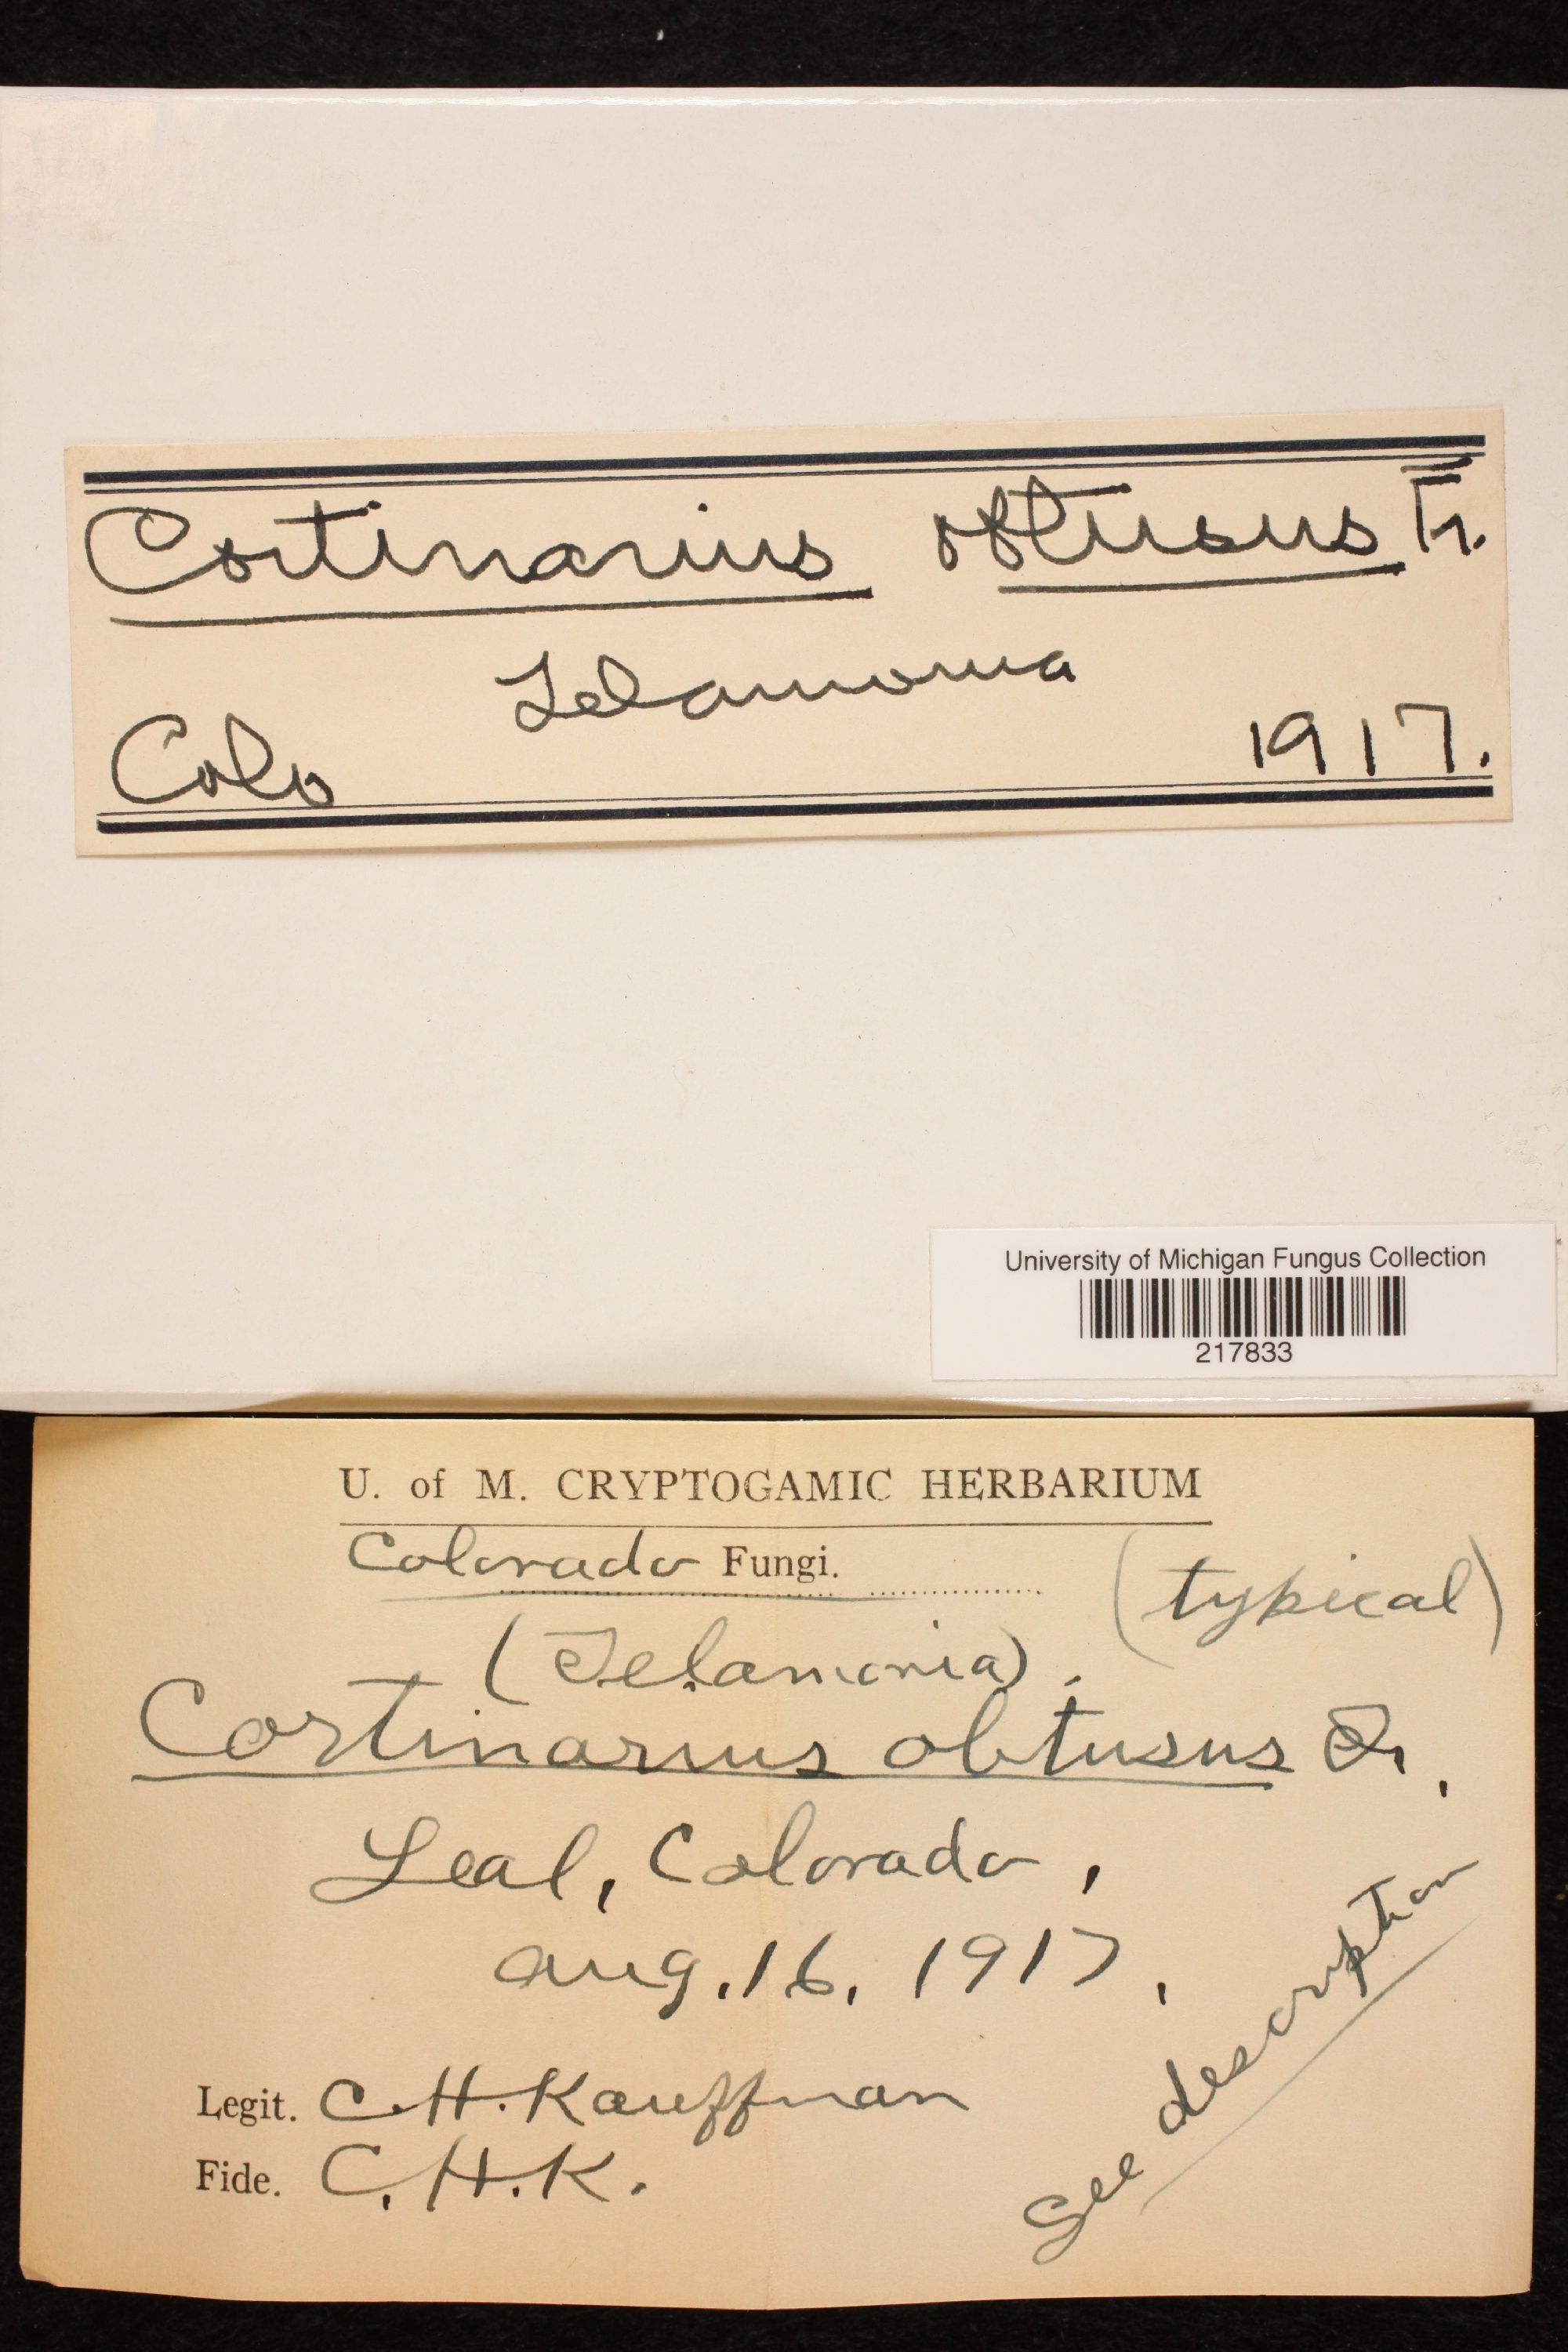 Cortinarius obtusus Fr.
Telamonia
Colo 1917.
University of Michigan Fungus Collection
217833
U. of M. CRYPTOGAMIC HERBARIUM
Colorado Fungi.
(typical)
(Telamonia).
Cortinarius obtusus Fr.
Leal, Colorado,
Aug. 16, 1917,
Legit. C.H. Kauffman
Fide. C.H.K.
See description